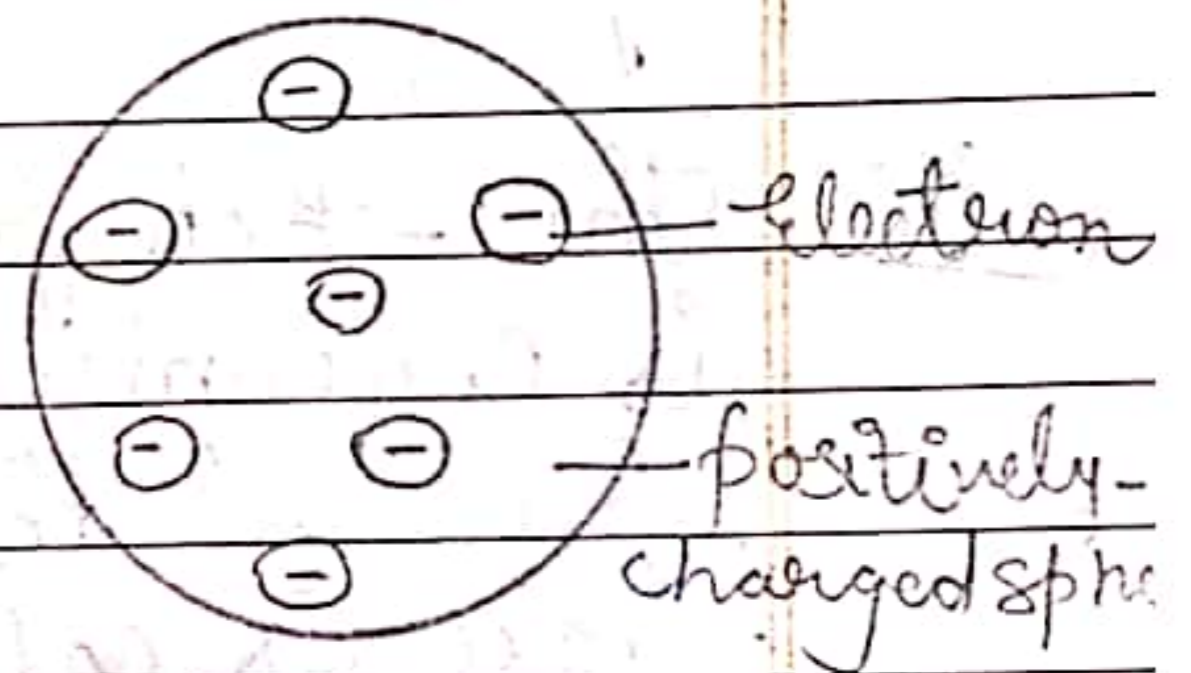 -
-
-
Electron
-
-
-
positively-
-
charged sphe